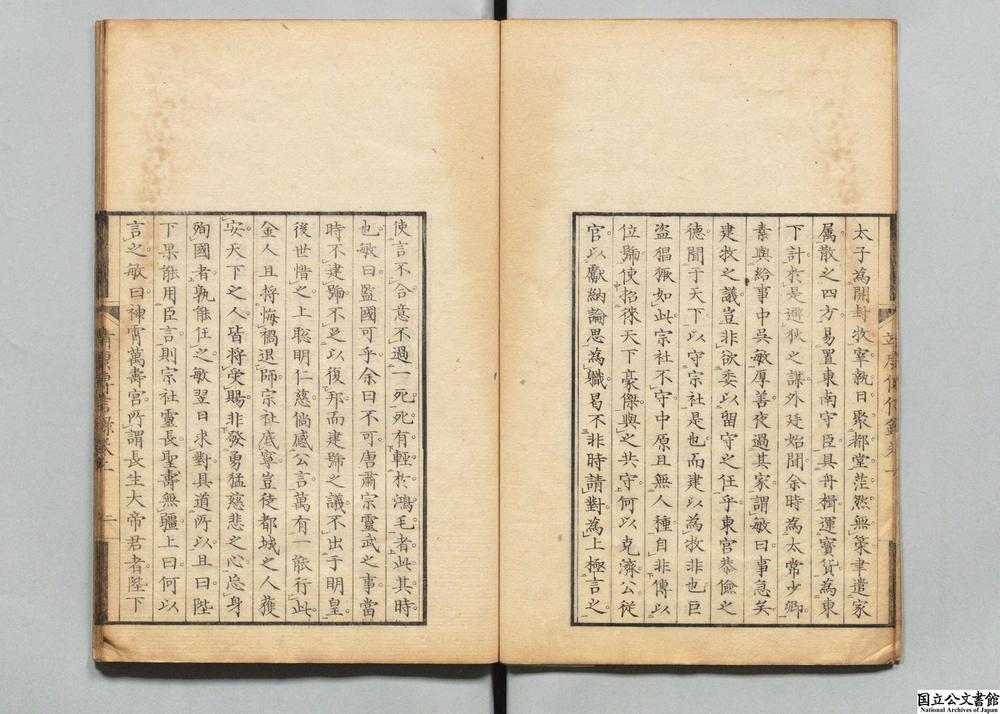 太子為開封牧宰執日聚都堂茫然無策聿遣家
属散之四方易置東南守臣具舟楫運寳貨為東
下計於是避狄之謀外廷始聞余時為太常少卿
素與給事中呉敏厚善夜過其家謂敏曰事急矣
建牧之議豈非欲委以留守之任乎東宮恭儉之
徳聞于天下以守宗社是也而建以為牧非也巨
盗猖獗如此宗社不守中原且無人種自非傳以
位號使招徠天下豪傑與之共守何以克濟公従
官以獻納論思為職曷不非時請對為上極言之
使言不合意不過一死死有輕於鴻毛者此其時
也敏曰監國可乎余曰不可唐肅宗靈武之事當
時不建號不足以復邦而建號之議不出于明皇
後世惜之上聡明仁慈倘感公言萬有一能行此
金人且将悔禍退師宗社底寧豈徒都城之人獲
安天下之人皆将受賜非發勇猛慈悲之心忘身
殉國者孰能任之敏翌日求對具道所以且曰陛
下果能用臣言則宗社靈長聖壽無疆上曰何以
言之敏曰神霄萬壽宮所謂長生大帝君者陛下
国立公文書館
National Archives of Japan